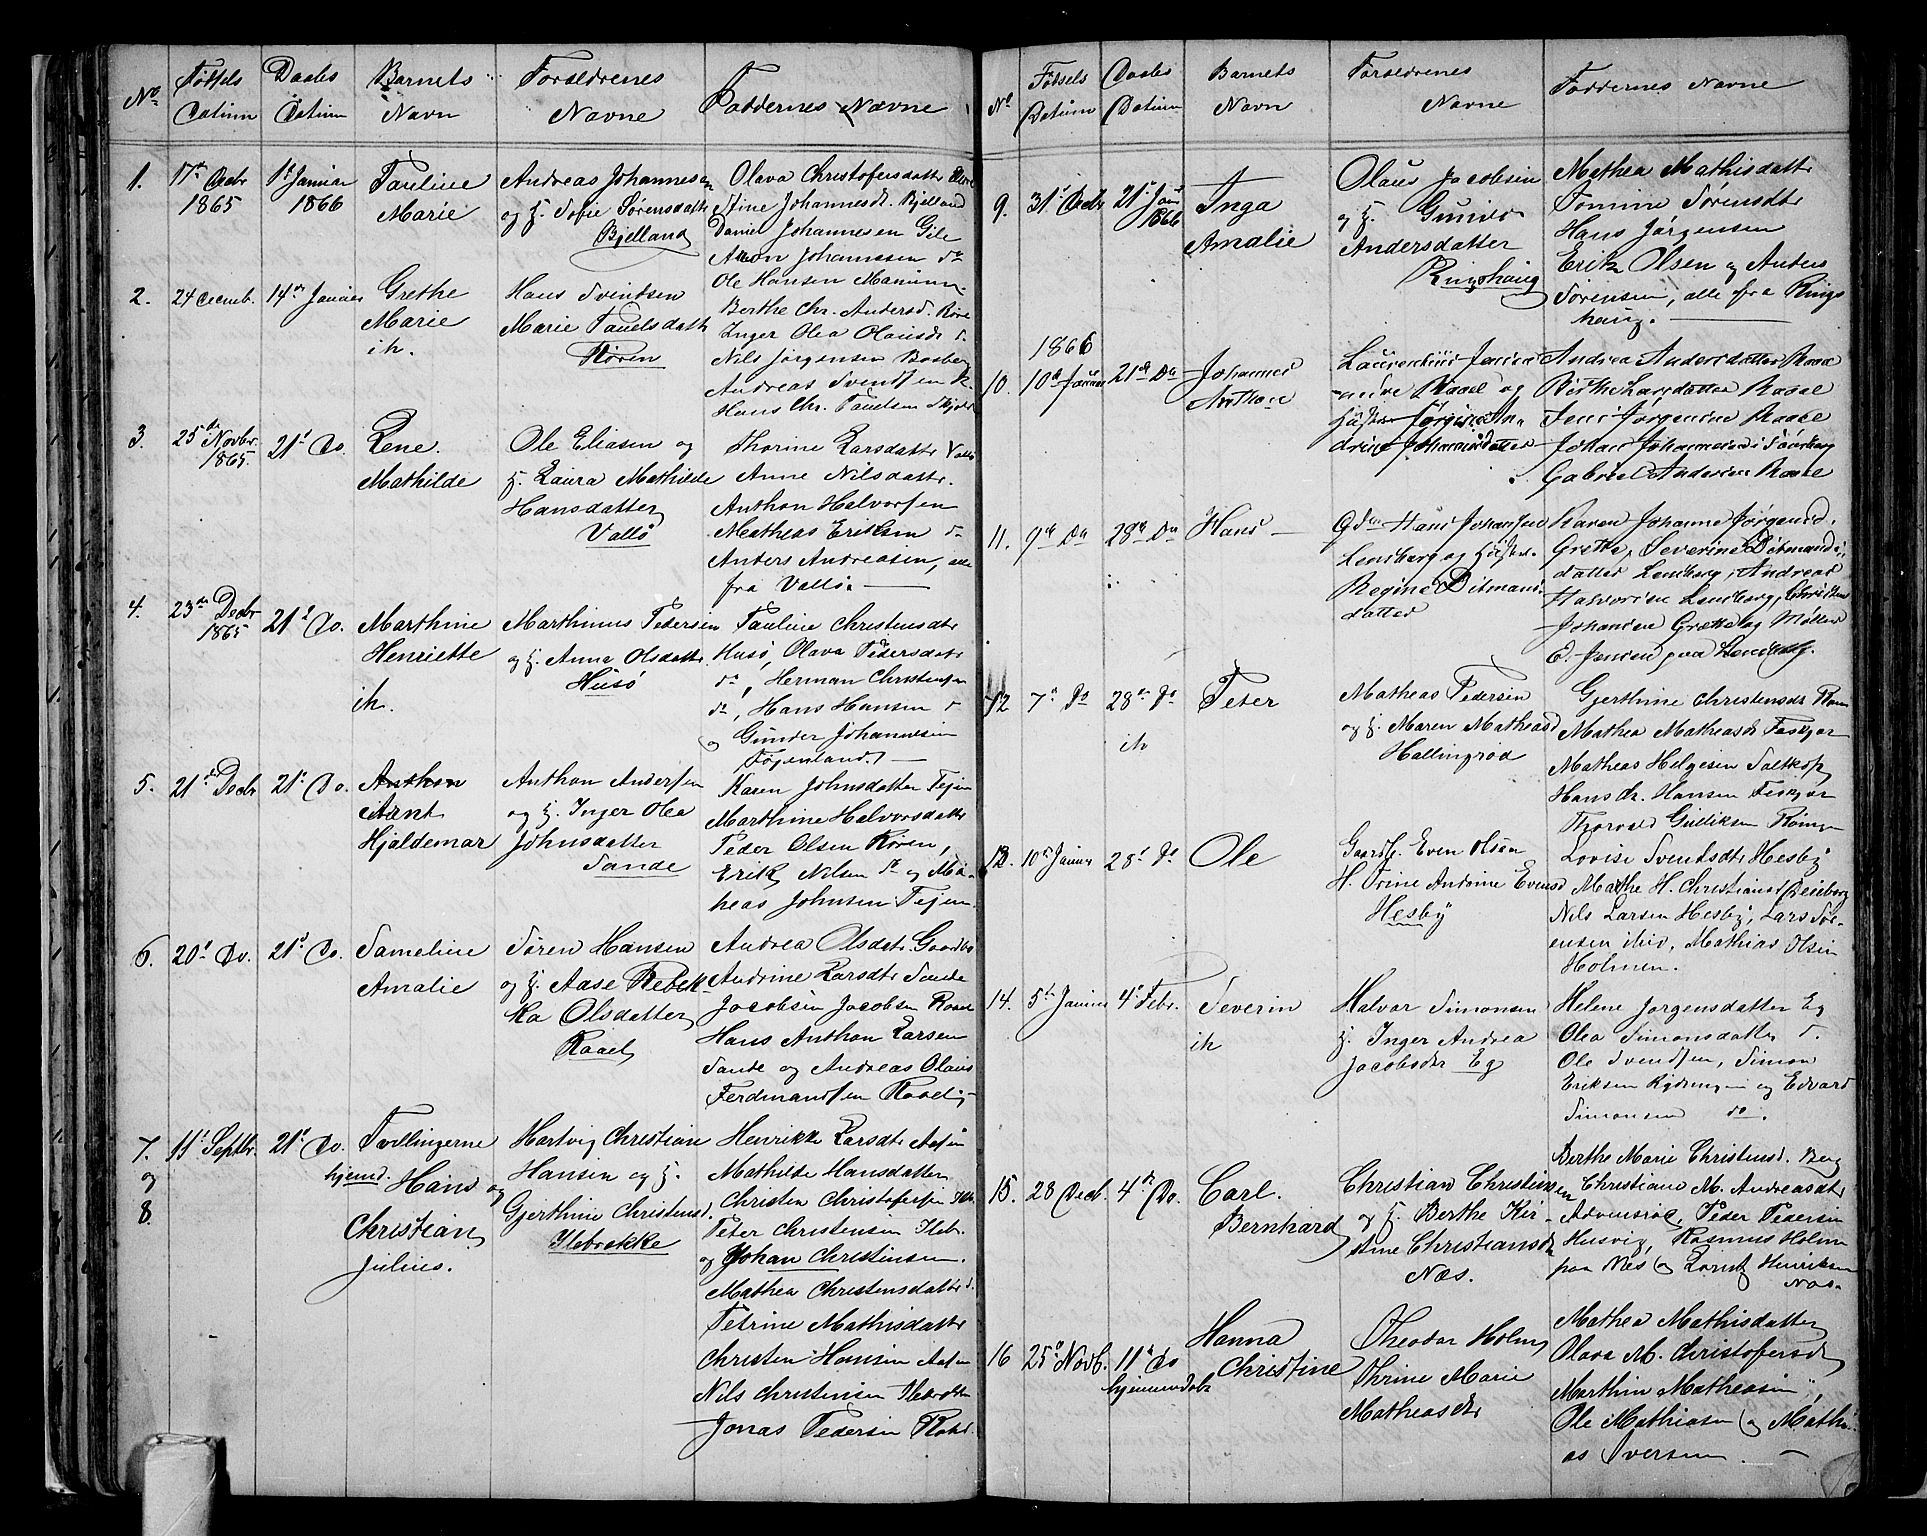 No Fødsels Datum Daabs Datum Barnets Navn Forældrenes Navne Faddernes Navne
1. 17de Decbr 1865 1ste Januar 1866
Pauline
Marie
Andreas Johannesen
og h. Sofie Sørensdatter
Bjelland
Olava Christofersdatter
Stine Johannesd. Bjelland
Daniel Johannesen Gile
Anon Johannesen do
Ole Hansen
2. 24 Decemb. 14de Januar
Grethe
Marie
ik.
Hans Svendsen
Marie Paulsdatter
Røren
Berthe Chr. Andersd. Røre
Inger Olea Olausdr d.
Nils Jørgensen Basberg
Andreas Svendsen R.
Hans Chr. Paulsen
3. 25de Novbr. 1865. 21d Do.
Lene
Mathilde
Ole Eliasen og
h. Laura Mathilde
Hansdatter
Vallø
Thorine Larsdatter Vallø
Anne Nilsdatter.
Anthon Halvorsen
Mathias Eriksen do
Anders Andreasen, alle
fra Vallø.
4. 23de Decbr 1865 21d Do.
Marthine
Henriette
ik.
Marthinus Pedersen
og h. Anna Olsdatter
Husø
Pauline Christensdtr
Husø, Olava Pedersdatr
do, Herman Christensen
do, Hans Hansen d
og Gunder Johannesen
Føjenland.
5. 21de Decbr 21d Do.
Anthon
Arnt
Hjaldemar
Anthon Andersen
og h. Inger Olea
Johnsdatter
Sande
Karen Johnsdatter Fejen
Marthine Halvorsdattr
Peder Olsen Røren,
Erik Nilsen do og Ma-
heas Johnsen Fejen
6. 20d Do. 21d Do.
Sameline
Amalie
Søren Hansen
og h. Aase Rebek-
ka Olsdatter
Raael
Andrea Olsdatr
Andrine Larsdtr Sande
Jacobsen Jacobsen Raael
Hans Anthon Larsen
Sande og Andreas Olaus
Ferdinandsen Raael
7. og 8. 11d Septbr. 21d Do.
Tvillingerne
hjemd. Hans og
Christian
Julius.
Hartvig Christian
Hansen og h.
Gjerthine Christensd.
Ilebrekke
Henrikke Larsdtr
Mathilde Hansdatter
Christen Christofersen
Peter Christensen Ilebr.
og Johan Christensen.
Mathea Christensdatter d.
Petrine Mathisdatter
Christen Hansen
Nils Christensen Ilebrekke
Jonas Pedersen
No Fødsels Datum Daabs Datum Barnets Navn Forældrenes Navne Faddernes Navne
9. 31d Decbr 21d Jan 1866
Inga
Amalie
Olaus Jacobsen
og h. Gunild
Andersdatter
Ringshaug
Mathea Mathisdattr
Tomine Sørensdtr
Hans Jørgensen
Erik Olsen og Anders
Sørensen, alle fra Rings
haug.
1866
10. 10d Januar 21de Do
Johannes
Anthon
Laurentius Jensen
Raael og
Hustru Jørgine An-
drine Johannesdatter
Andrea Andersdatter Raael
Birthe Larsdatter Raael
Jens Jørgensen Raael
Johan Johannesen
Gabriel Andersen Raael
11. 9de Do 28de Do
Hans
Hans Johansen
Lensberg og Hustru
Regine Ditmans-
datter
Karen Johanne Jørgensd.
Grette, Severine Ditmands-
datter Lensberg, Andreas
Halvorsen Lensberg, Christen
Johansen Grette og Møller
E. Jensen paa Lensberg.
12 7de Do 28de Do
ik
Peter
Matheas Pedersen
og h. Maren Matheasd
Hallingrød
Gjerthine Christensdr
Mathea Matheasdr Feskjær
Matheas Helgesen Saltkop
Hans Chr. Hansen Feskjær
Thorvald Gulliksen
13. 10de Januar 28d Do
Ole
Gaardbr. Even Olsen
H. Trine Andrine Evensd
Hesby
Lovise Svendsdtr Hesby
Marthe H. Christiansd
Nils Larsen Hesby, Lars Sør-
ensen ibid, Mathias Olsen
Holmen.
14. 5te Januar 4d Febr.
Severin
ik
Halvor Simonsen
h. Inger Andrea
Jacobsdtr Eg
Helene Jørgensdatter Eg
Olea Simonsdatter d.
Ole Svendsen, Simon
Eriksen og Edvard
Simonsen do.
15. 28 Decb. 4de Do.
Carl
Bernhard
Christian Christensen
og h. Berthe Kir-
stine Christiansdr
Næs.
Berthe Marie Christensd. Berg
Christiane M. Andreasdtr
Peder Pedersen
Husvig, Rasmus Holm
paa Næs og Lorentz Henriksen
Næs
16 25d Novb. 11d Do
hjemmedøbt
Hanna
Christine
Theodor Holm
Thrine Marie
Matheasdtr
Mathea Mathisdatter
Olava M. Christofersdr
Marthin Matheasen
Ole Mathiasen og Mathi-
as Iversen.